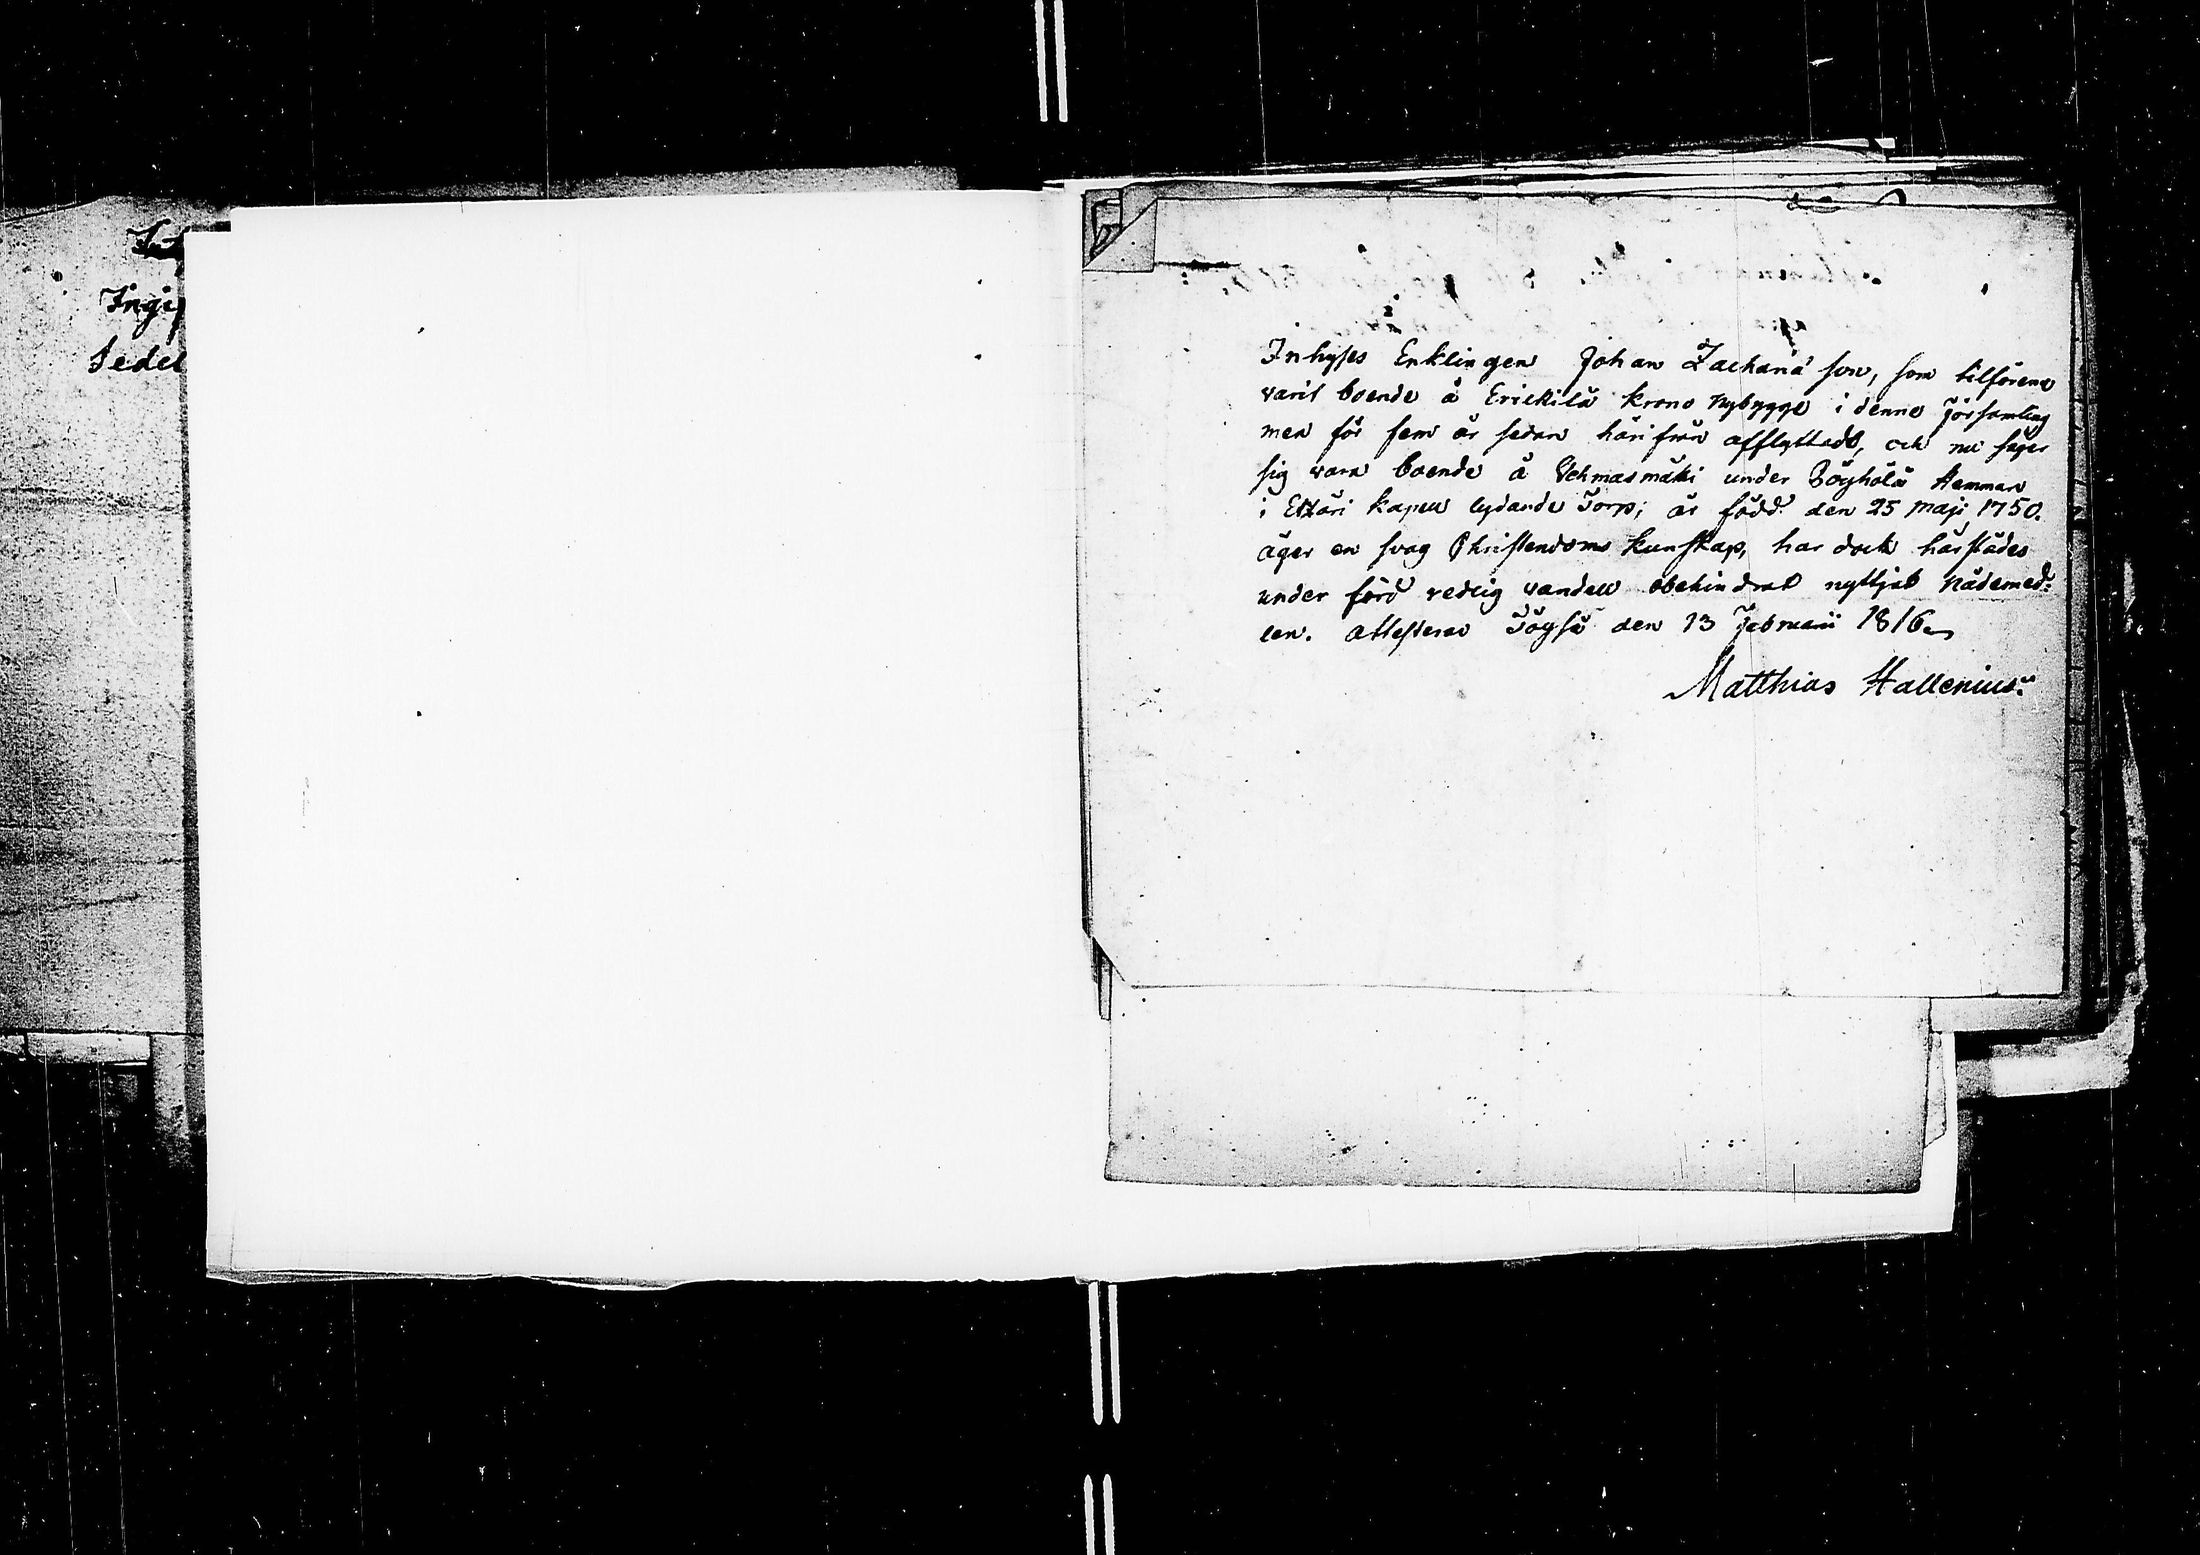 Inhyses Enklingen Johan Zachariä son, som tilförene
varit boende å Erickilä krono Nybygge i denne Församling
men för fem år sedan härifrån afflyttadt, och nu säger
sig vara boende å Vehmasmäki under Böyhölä Hemman
i Etzäri kapell lydande Torp; är född den 25 Maji 1750.
äger en svag Christendoms kunskap, har dock härstädes
under förd redlig vandell obehindrat nyttjat Nådemed:
len. Attesteras Töysä den 13 Februarii 1816
Matthias Hallenius.
Ingi
Sedel